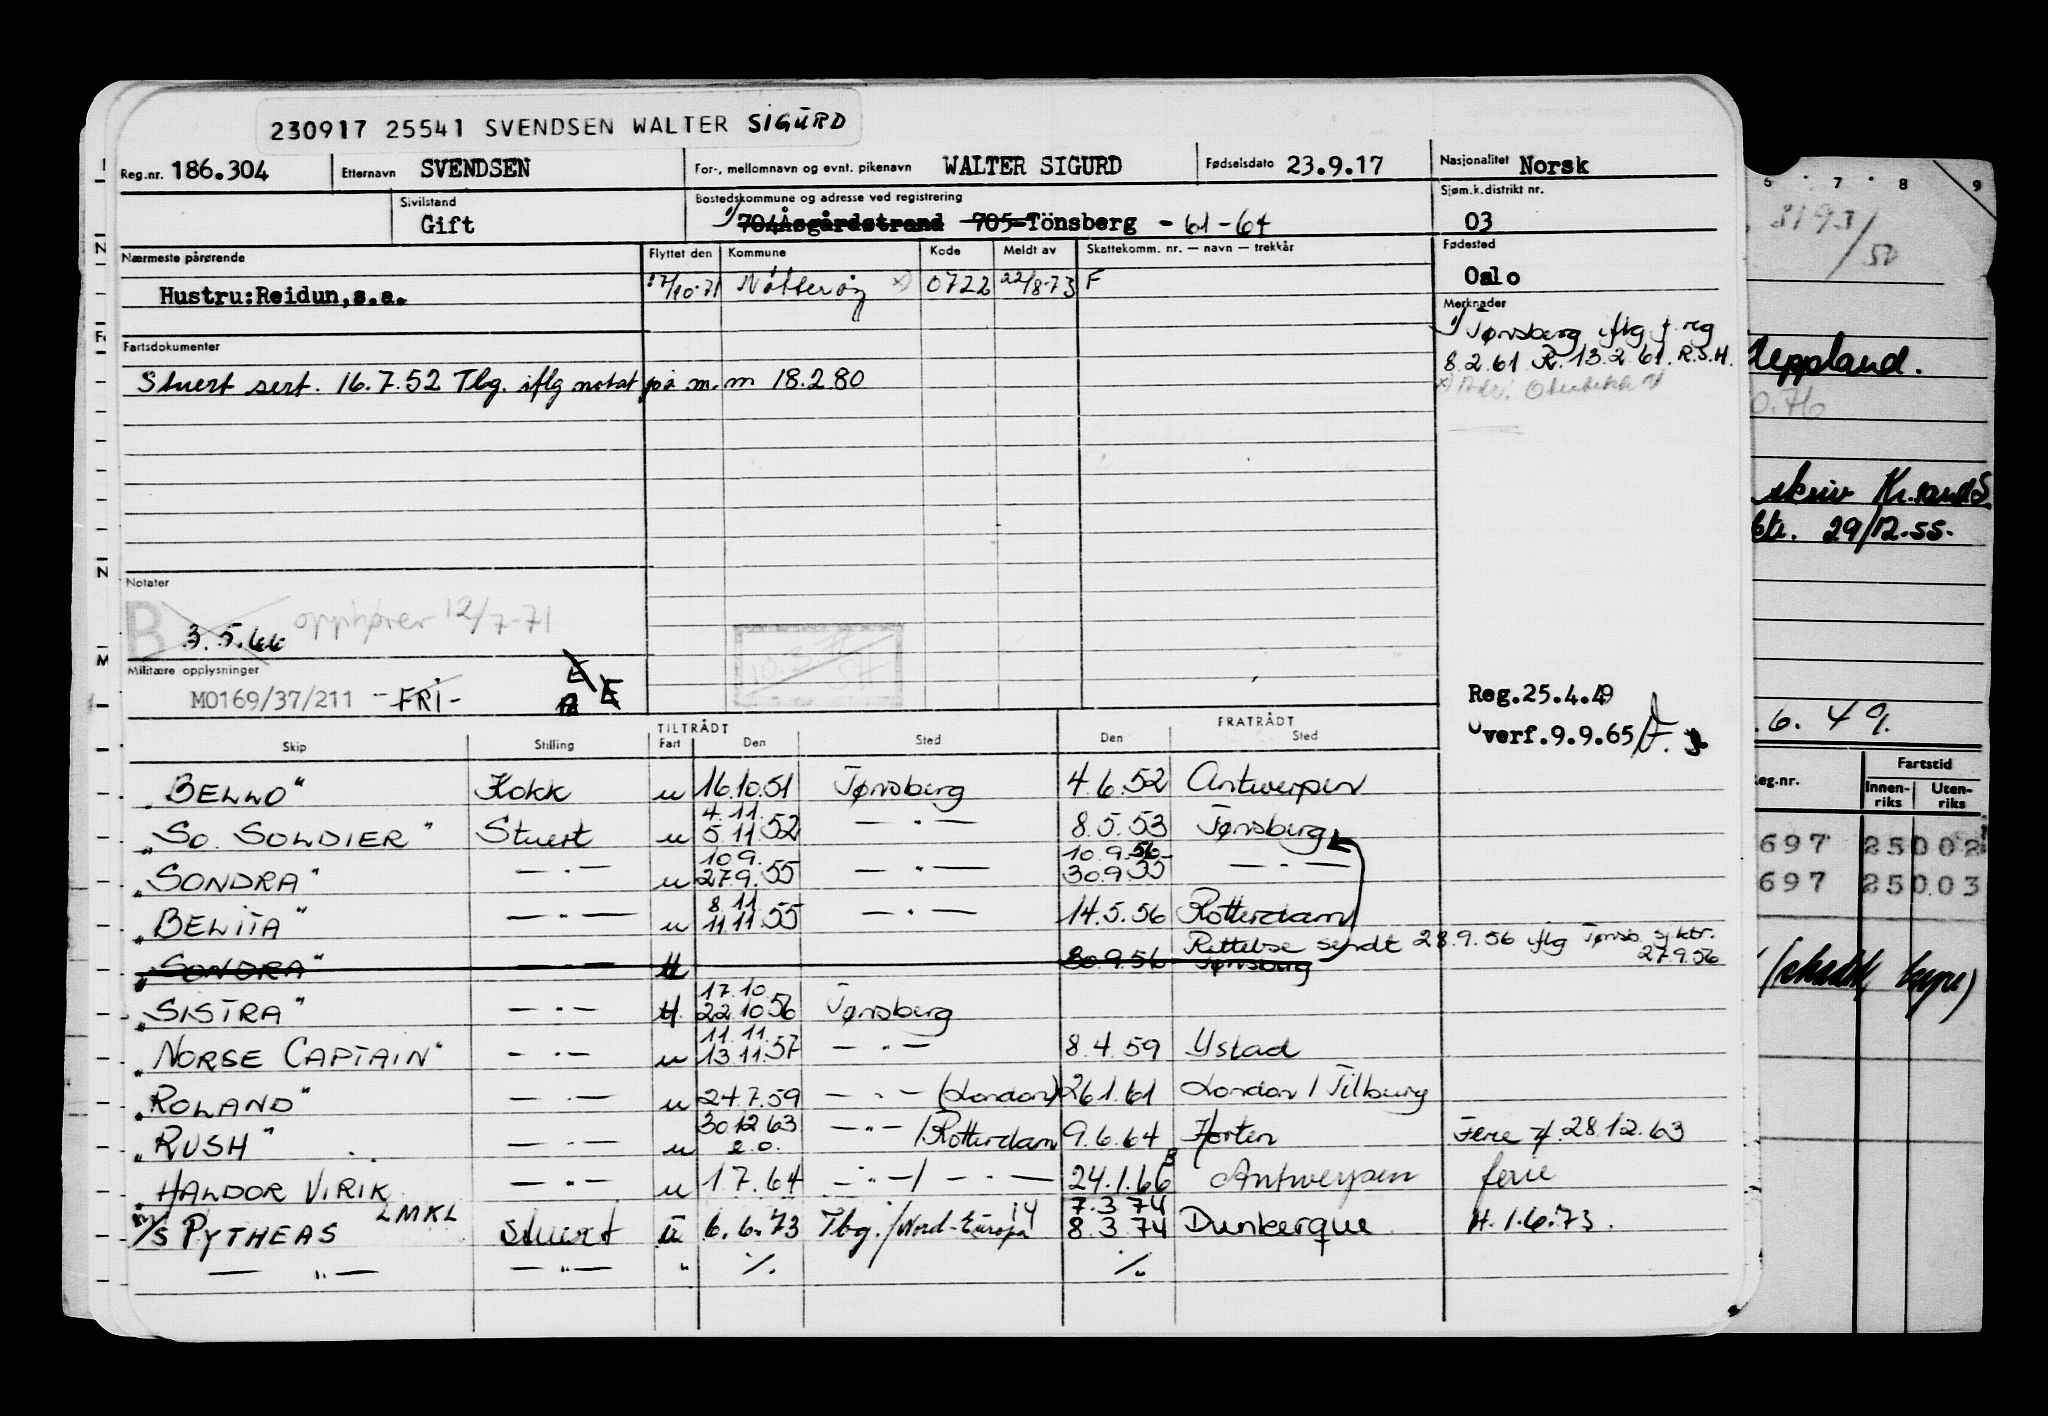 230917 25541 SVENDSEN WALTER SIGURD
Reg.nr. 186.304 Etternavn SVENDSEN For-, mellomnavn og evnt. pikenavn WALTER SIGURD Fødselsdato 23.9.17 Nasjonalitet Norsk
Sivilstand Gift Bostedskommune og adresse ved registrering 1) 704Åsgårdstrand 705-Tönsberg - 61-64 Sjøm.k.distrikt nr. 03
Nærmeste pårørende Flyttet den Kommune Kode Meldt av Skattekomm. nr. — navn — trekkår Fødested
Hustru:Reidun,s.a. 17/10-71 Nøtterøy x) 0722 22/8-73 F Oslo
Merknader
1) Tønsberg iflg f reg
8.2.61 R. 13.2.61. R.S.H.
Fartsdokumenter
Stuert sert. 16.7.52 Tbg. iflg notat på m.m 18.2.80
Notater
B 3.5.66 opphører 12/7-71
Militære opplysninger
M0169/37/211 -FRI- E
Reg.25.4.49
verf.9.9.65
TILTRÅDT FRATRÅDT
Skip Stilling Fart Den Sted Den Sted
"BELLO" Kokk u 16.10.51 Tønsberg 4.6.52 Antwerpen
4.11.
"SO. SOLDIER" Stuert u 5.11.52 — " — 8.5.53 Tønsberg
10.9. 10.9.56
"SONDRA" — " — u 27.9.55 — " — 30.9.55 — " —
8.11.
"BELITA" — " — u 11.11.55 — " — 14.5.56 Rotterdam
Rettelse sendt 28.9.56 iflg Tønsb. sj.ktr. 27.9.56
"SONDRA" — " — u 30.9.56 Tønsberg
17.10.
"SISTRA" — " — H 22.10.56 Tønsberg
11.11.
"NORSE CAPTAIN" — " — u 13.11.57 — " — 8.4.59 Ystad
"ROLAND" — " — u 24.7.59 — " — (London) 26.1.61 London / Tilburg
30.12.63
"RUSH" — " — u 2.0. — " — /Rotterdam 9.6.64 Horten Ferie f. 28.12.63
"HALDOR VIRIK — " — u 1.7.64 — " — / — " — 24.1.66 Antwerpen ferie
7.3.74
M/S PYTHEAS LMKL Stuert u 6.6.73 Tbg./Nord-Europa 14 8.3.74 Dunkerque H. 1.6.73.
— " — — " — " %. %.
6 7 8 9
8193/50
Heppland.
skriv Kr.sand S.
29/12.55.
6. 49.
Fartstid
Reg.nr. Innen-riks Uten-riks
697 25002
697 25003